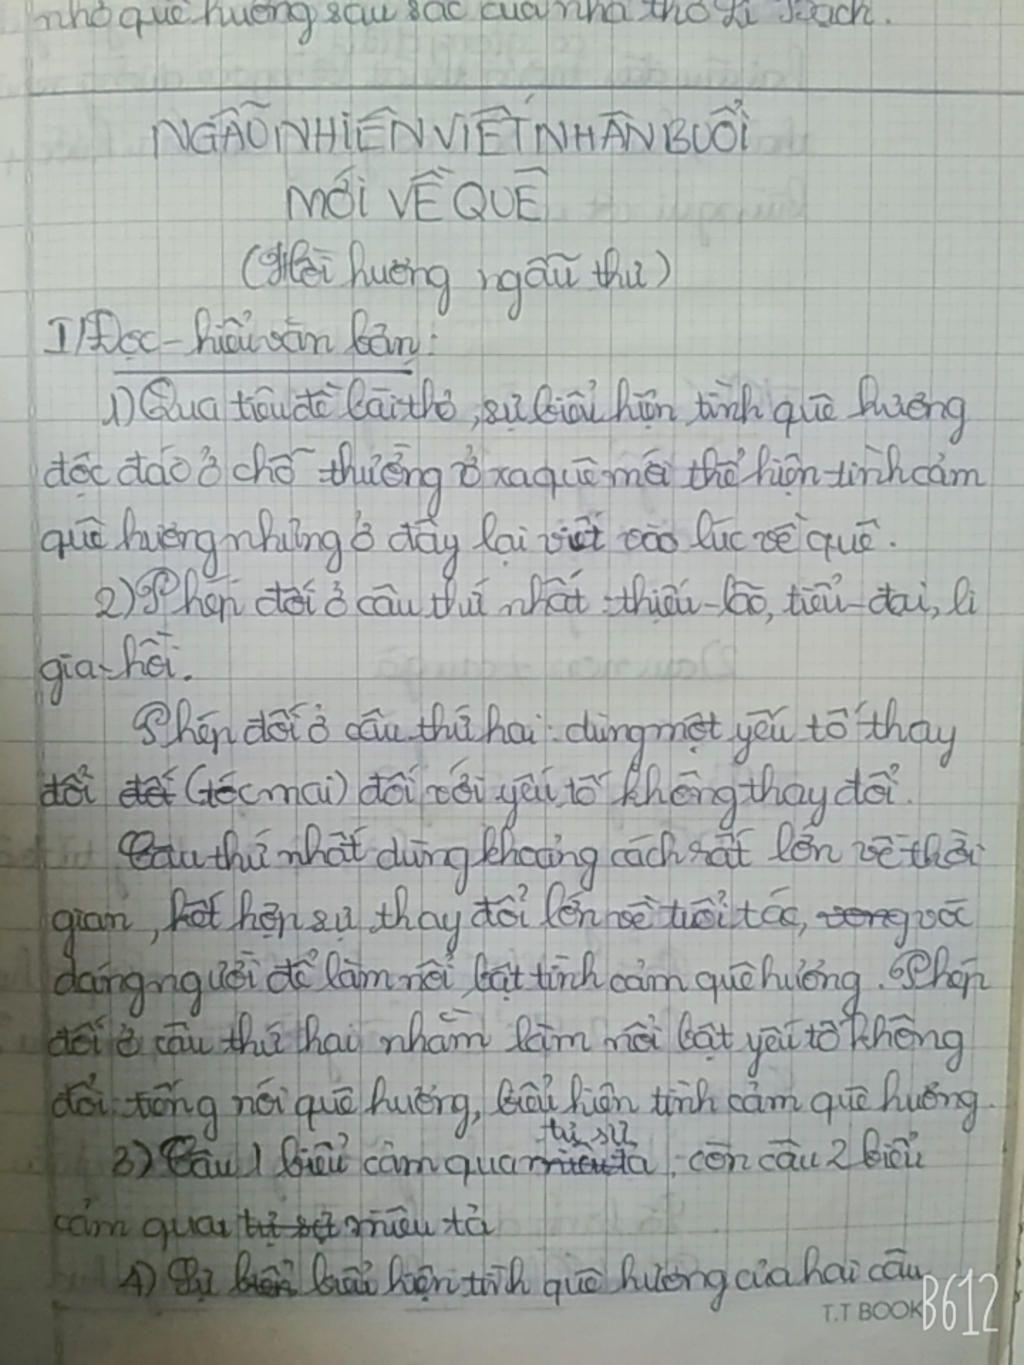 nhớ quê hương sâu sắc của nhà thơ Lí Bạch.
NGẪU NHIÊN VIẾT NHÂN BUỔI
MỚI VỀ QUÊ
(Hồi hương ngẫu thư)
I/Đọc - hiểu văn bản:
1) Qua tiêu đề bài thơ, sự biểu hiện tình quê hương
độc đáo ở chỗ thường ở xa quê mới thể hiện tình cảm
quê hương nhưng ở đây lại viết vào lúc về quê.
2) Phép đối ở câu thứ nhất: thiếu-lão, tiểu-đại, li
gia-hồi.
Phép đối ở câu thứ hai: dùng một yếu tố thay
đổi (tóc mai) đối với yếu tố không thay đổi.
Câu thứ nhất dùng khoảng cách rất lớn về thời
gian, hợp sự thay đổi lớn về tuổi tác, vóc
dáng người để làm nổi bật tình cảm quê hương. Phép
đối ở câu thứ hai nhằm làm nổi bật yếu tố không
đổi: tiếng nói quê hương, biểu hiện tình cảm quê hương.
3) Câu 1 biểu cảm qua tự sự, còn câu 2 biểu
cảm qua miêu tả
4) Sự biểu hiện tình quê hương của hai câu
T.T BOOK
B612